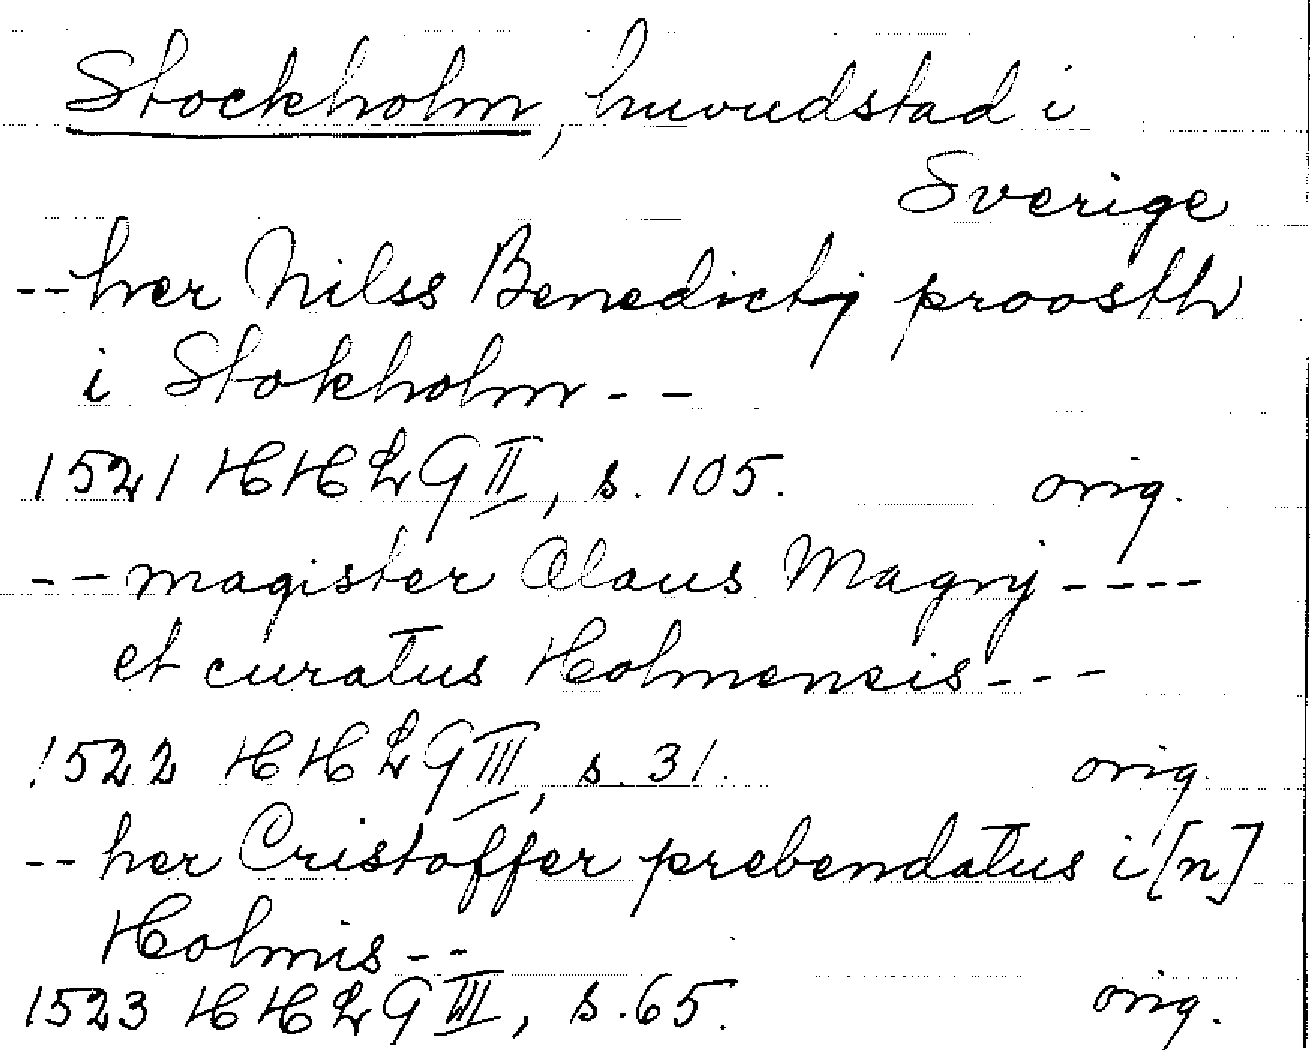 Stockholm, huvudstad i
Sverige
-- her Nilss Benedictj proosth
i Stokholm --
1521 HHLG II, s. 105. orig.
-- magister Olaus Magnj ----
et curatus Holmensis ---
1522 HHLG III, s. 31. orig.
-- her Cristoffer prebendatus i[n]
Holmis --
1523 HHLG III, s. 65. orig.